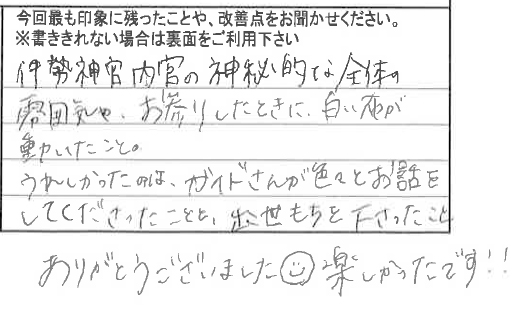 今回最も印象に残ったことや、改善点をお聞かせください。
※書ききれない場合は裏面をご利用下さい
伊勢神宮内宮の神秘的な全体の
雰囲気や、お参りしたときに、白い布が
動いたこと。
うれしかったのは、ガイドさんが色々とお話を
してくださったことと、出世もちを下さったこと
ありがとうございました☺楽しかったです!!